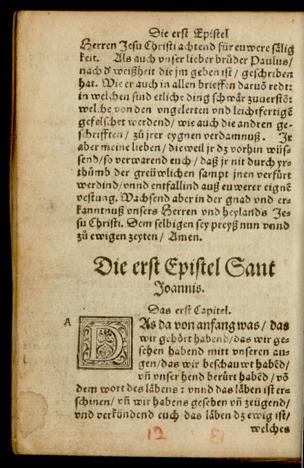 Die erst Epistel
Herren Jesu Christi achtend für euwere sälig
keit. Als auch vnser lieber brůder Paulus/
nach d' weißheit die jm geben ist/ geschriben
hat. Wie er auch in allen brieffen daruō redt:
in welchen sind etliche ding schwär zuuerstō:
welche von den vngelerten vnd leichtfertigē
gefelschet werdend/ wie auch die andren ge-
schrifften/ zů jrer eygnen verdamnuß. Jr
aber meine lieben/ dieweil jr dz vorhin wüs-
send/ so verwarend euch/ daß jr nit durch yr-
thůmb der greüwlichen sampt jnen verfürt
werdind/ vnnd entfallind auß euwerer eignē
vestung. Wachsend aber in der gnad vnd er-
kanntnuß vnsers Herren vnd heylands Je-
su Christi. Dem selbigen sey preyß nun vnnd
zů ewigen zeyten/ Amen.
Die erst Epistel Sant
Joannis.
Das erst Capitel.
A
DAs da von anfang was/ das
wir gehört habend/das wir ge-
sehen habend mitt vnseren au-
gen/das wir beschauwt habēd/
vñ vnser hend berürt habēd/ vō
dem wort des läbens: vnnd das läben ist er-
schinen/ vñ wir habens gesehen vñ zeügend/
vnd verkündend euch das läben dz ewig ist/
welches